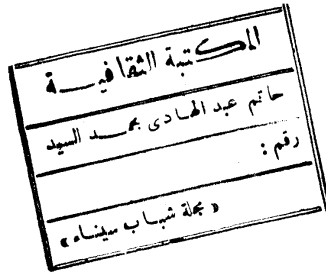 المكتبة الثقافيــة
حاتم عبد الهادى محمد السيد
رقم :
« مجلة شباب سيناء »